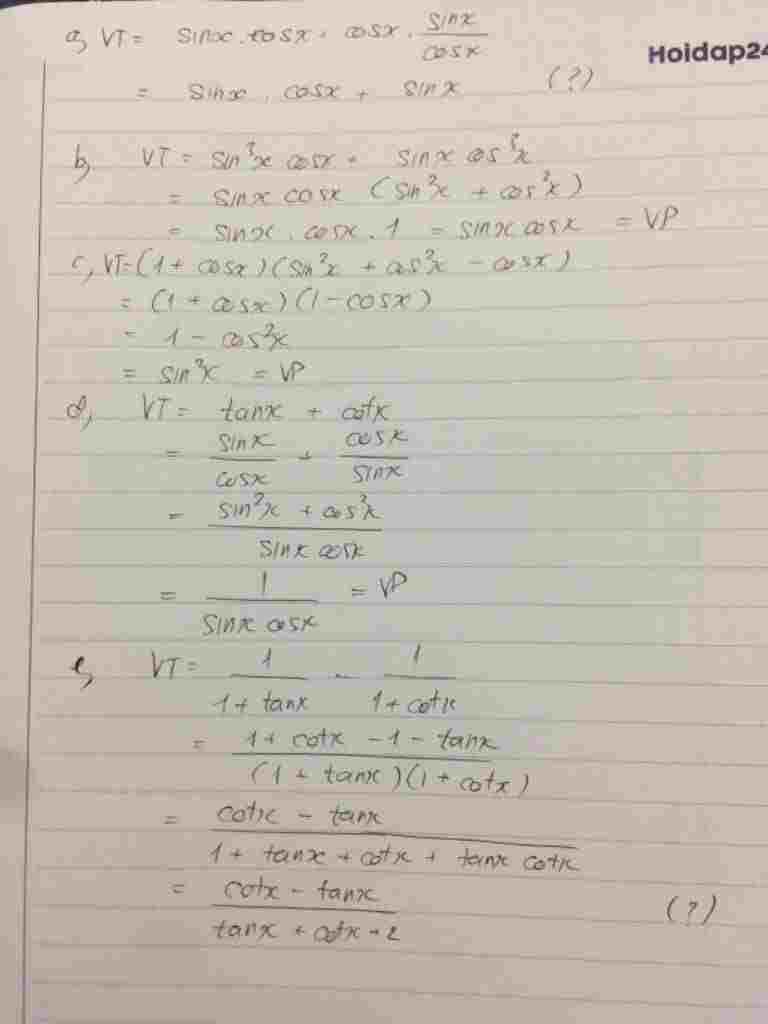 a, VT = sinx.cosx + cosx . sinx/cosx
Hoidap24
= sinx . cosx + sinx (?)
b, VT = sin³x cosx + sinx cos³x
= sinx cosx (sin²x + cos²x)
= sinx . cosx . 1 = sinx cosx = VP
c, VT = (1 + cosx)(sin²x + cos²x - cosx)
= (1 + cosx)(1 - cosx)
= 1 - cos²x
= sin²x = VP
d, VT = tanx + cotx
= sinx/cosx + cosx/sinx
= sin²x + cos²x / sinx cosx
= 1 / sinx cosx = VP
e, VT = 1 / 1 + tanx - 1 / 1 + cotx
= 1 + cotx - 1 - tanx / (1 + tanx)(1 + cotx)
= cotx - tanx / 1 + tanx + cotx + tanx cotx
= cotx - tanx / tanx + cotx + 2 (?)